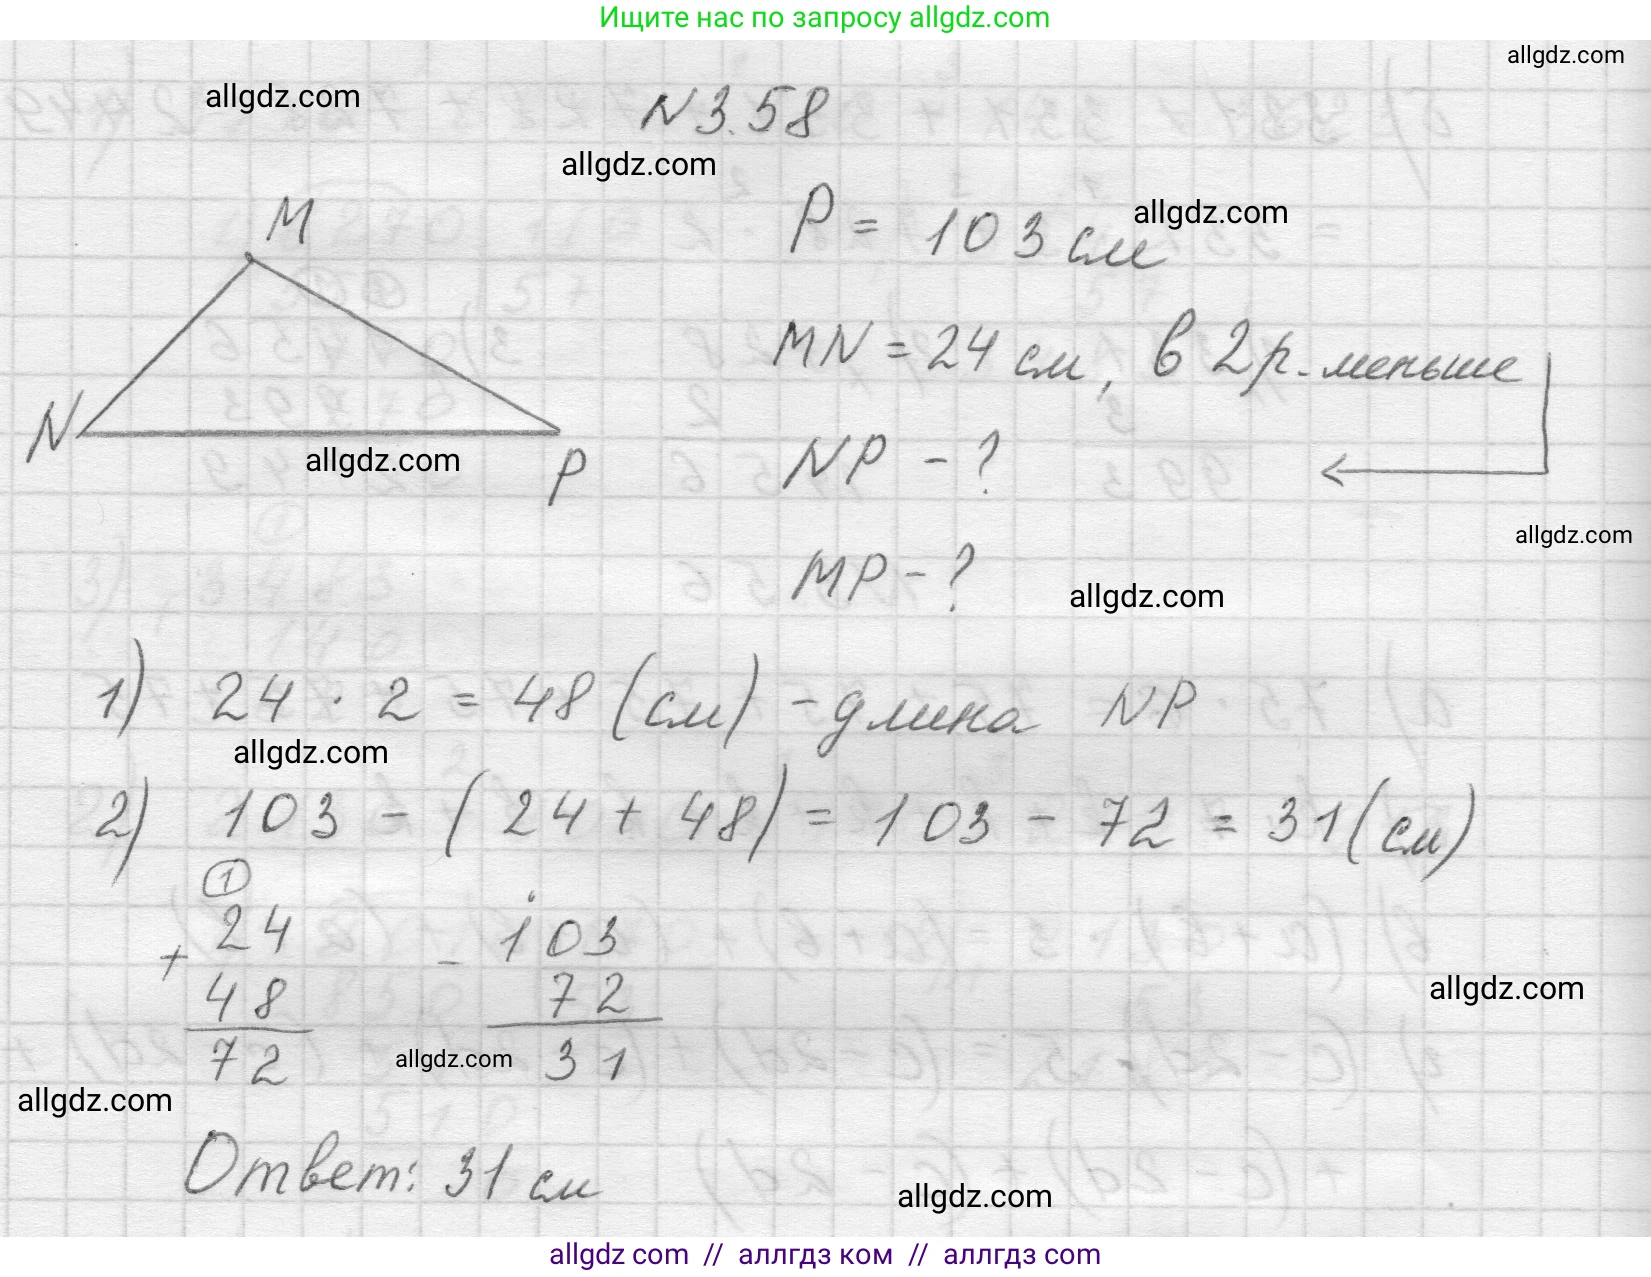 Ищите нас по запросу allgdz.com
allgdz.com
allgdz.com
N3.58
allgdz.com
M
P = 103 см
allgdz.com
MN = 24 см, в 2 р. меньше
N
P
allgdz.com
NP - ?
allgdz.com
MP - ?
allgdz.com
1) 24 · 2 = 48 (см) - длина NP
allgdz.com
2) 103 - (24 + 48) = 103 - 72 = 31 (см)
1
24 103
+ -
48 72
allgdz.com
72 31
allgdz.com
allgdz.com
Ответ: 31 см
allgdz.com
allgdz com // аллгдз ком // аллгдз com